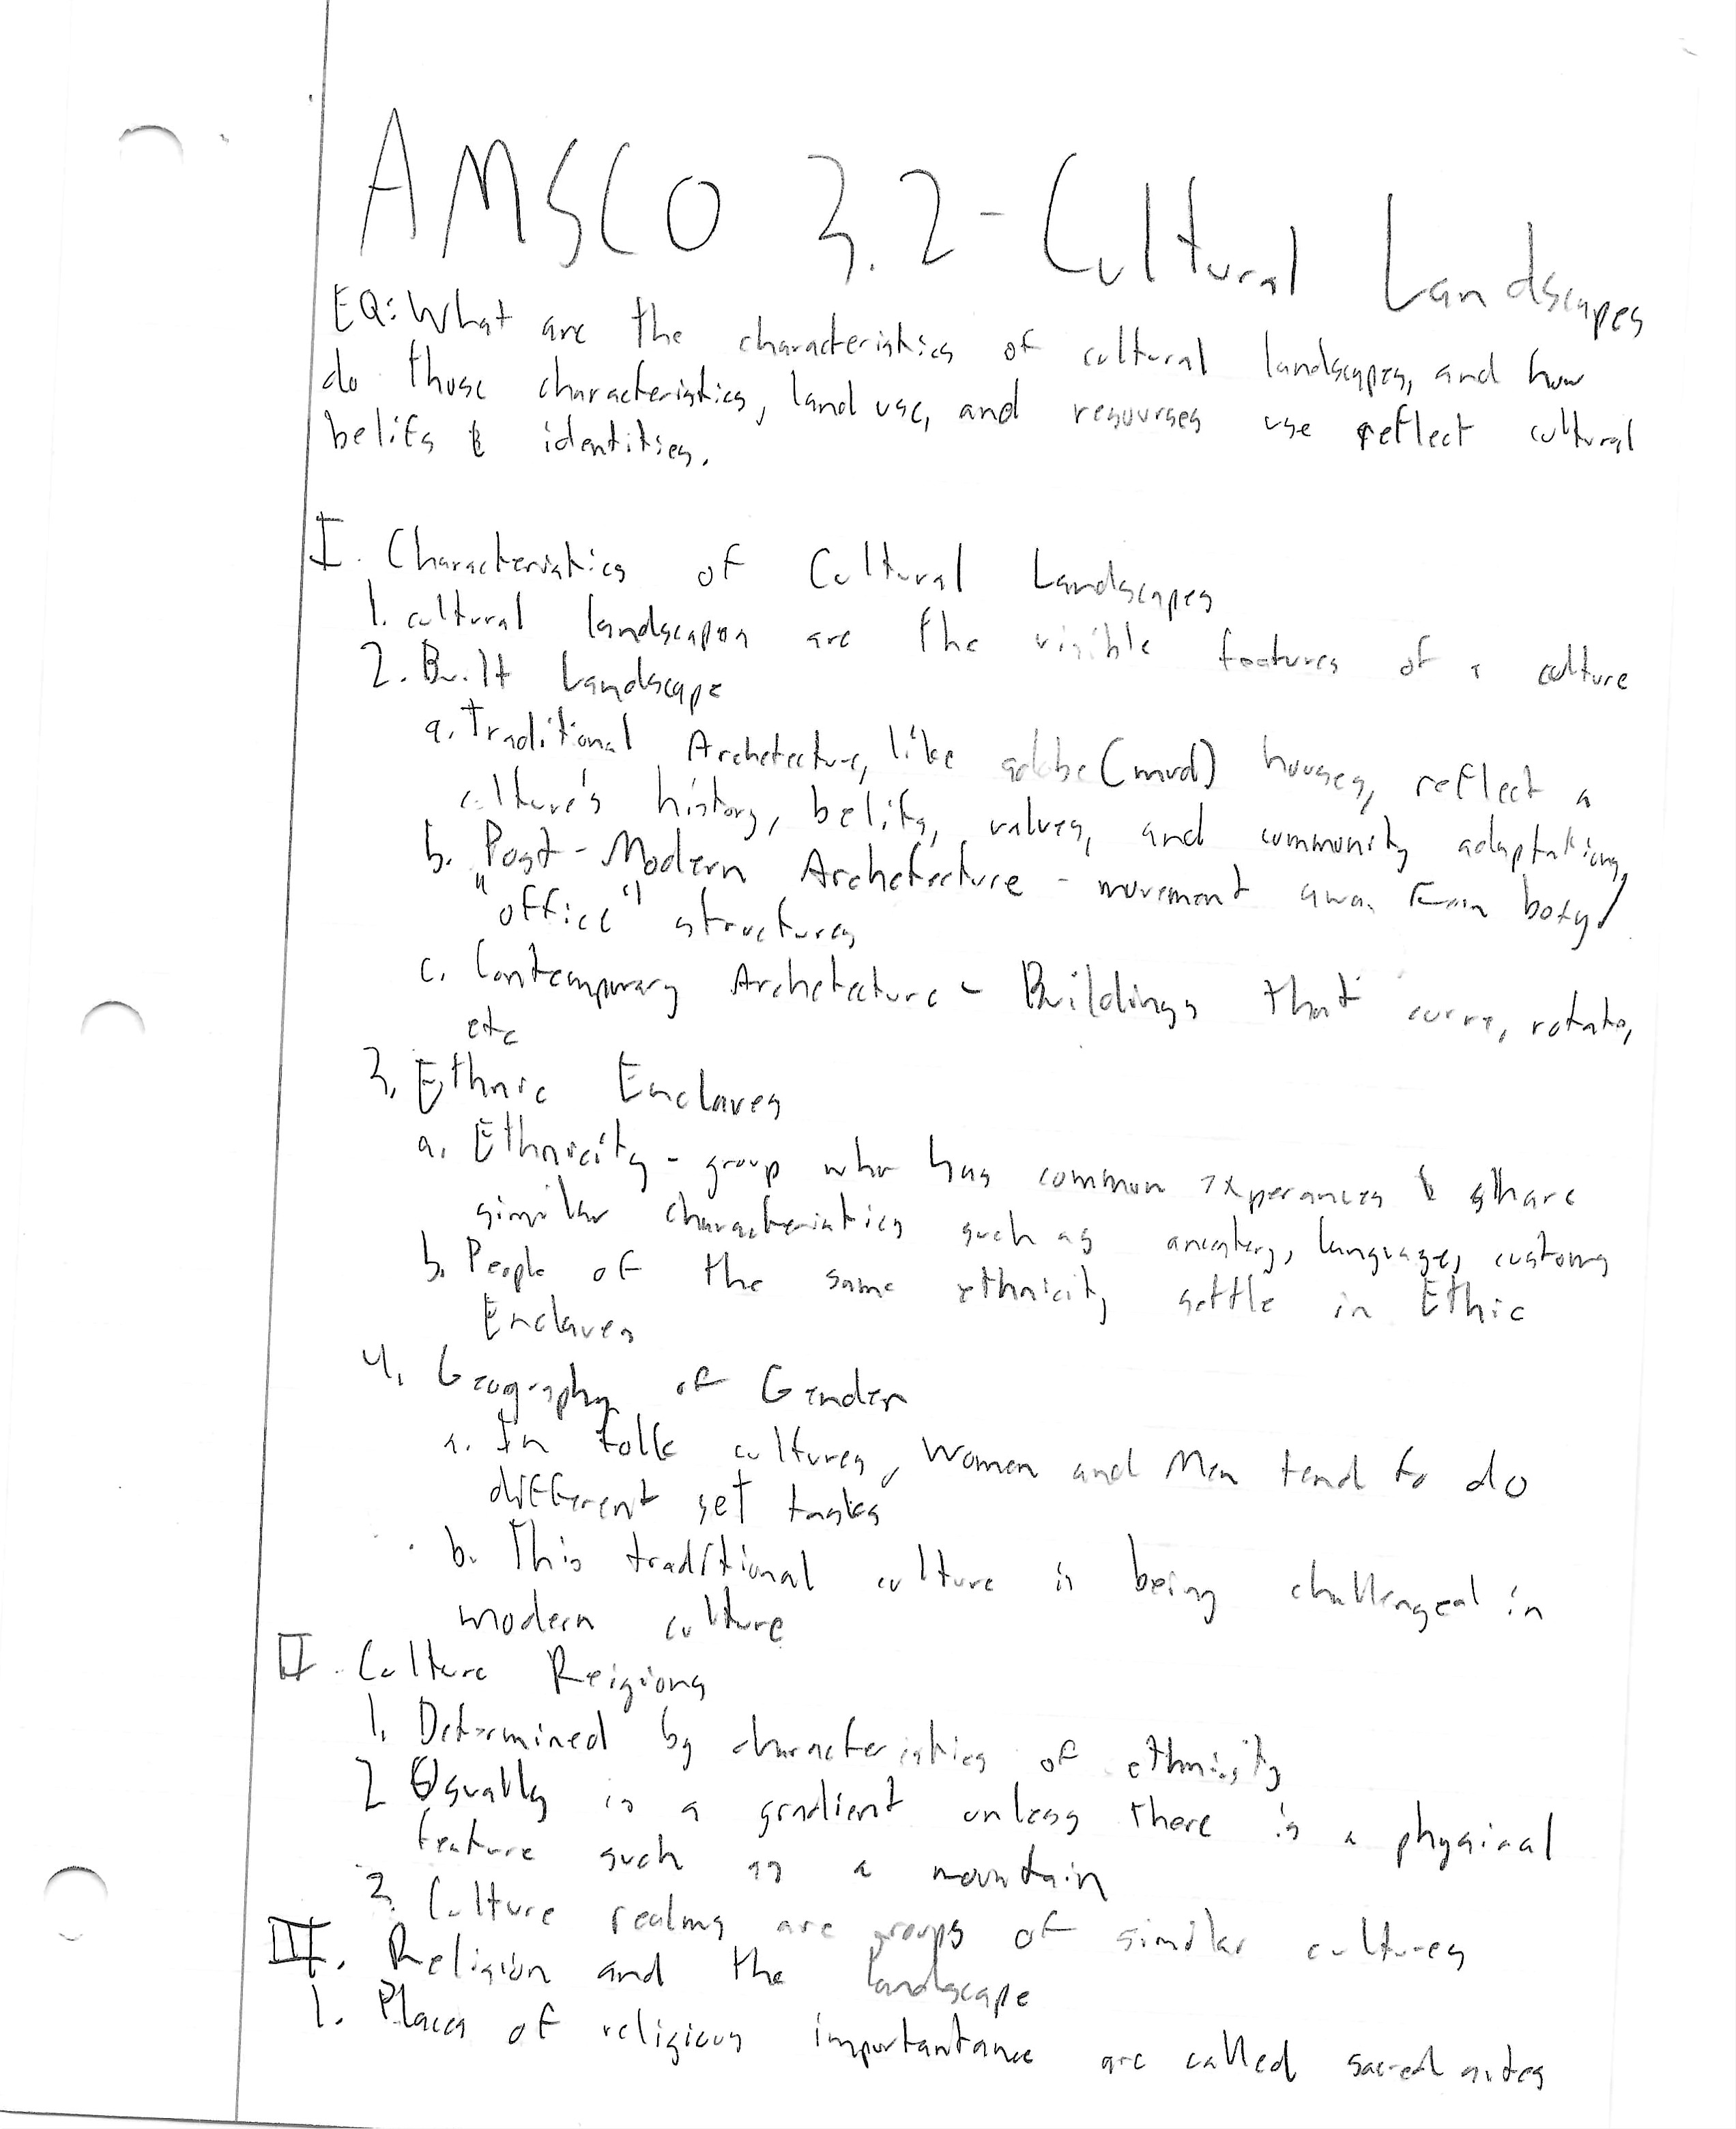 AMSCO 3.2 - Cultural Landscapes
EQ: What are the characteristics of cultural landscapes, and how
do those characteristics, land use, and resourses use reflect cultural
belifs & identities.
I. Characteristics of Cultural Landscapes
1. cultural landscapes are the visible features of a culture
2. Built Landscape
a. Traditional Archetecture, like adobe (mud) houses, reflect a
culture's history, belifs, values, and community adaptations
b. Post-Modern Archetecture - movement away from boxy/
"office" structures
c. Contemporary Archetecture - Buildings that curve, rotate,
etc
3. Ethnic Enclaves
a. Ethnicity - group who has common experances & share
similar characteristics such as ancestery, language, customs
b. People of the same ethnicity settle in Ethic
Enclaves
4. Geography of Gender
a. In folk cultures, Women and Men tend to do
different set tasks
b. This traditional culture is being challenged in
modern culture
II. Culture Reigions
1. Determined by characteristics of ethnisity
2 Usually is a gradient unless there is a physical
feature such as a mountain
3. Culture realms are groups of similar cultures
III. Religion and the landscape
1. Places of religious importantance are called sacred sites